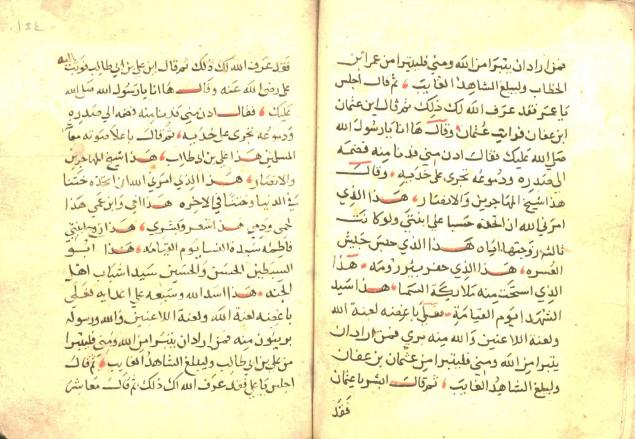 فمن اراد ان يتبرا من الله ومني فليتبرا من عمر ابن
الخطاب وليبلغ الشاهد الغايب ثم قال اجلس
يا عمر فقد عرف الله لك ذلك ثم قال ابن عثمان
ابن عفان فوثب عثمان وقال ها انا يا رسول الله
صلى الله عليك فقال ادن مني فدنا منه فضمه
الى صدره ودموعه تجرى على خديه وقال
هذا شيخ المهاجرين والانصار هذا الذي
امرني الله ان اتخذه على ابنتي ولو كانت
ثالثه زوجتها اياه هذا الذي جهز جيش
العسره هذا الذي حفر بير رومه هذا
الذي استحت منه ملائكة السما هذا سيد
الشهدا يوم القيامة فعلى باغضه لعنة الله
ولعنة اللاعنين والله منه بري فمن اراد ان
يتبرا من الله ومني فليتبرا من عثمان بن عفان
وليبلغ الشاهد الغايب ثم قال اجلس يا عثمان
فقد
فقد عرف الله لك ذلك ثم قال ابن علي بن ابي طالب فوثب اليه
على رضي الله عنه وقال ها انا يا رسول الله صلى الله
عليك فقال ادن مني فدنا منه وضمه الى صدره
ودموعه تجرى على خديه ثم قال باعلا صوته معاشر
المسلمين هذا علي بن ابي طالب هذا شيخ المهاجرين
والانصار هذا الذي امرني الله ان اتخذه ختنا
في الدنيا وختنا في الاخره هذا اخي وابن عمي هذا
لحمي ودمي هذا شعري وبشري هذا زوج ابنتي
فاطمه سيدة النسا يوم القيامه هذا ابو
السبطين الحسن والحسين سيدا شباب اهل
الجنه هذا اسد الله وسيفه على اعدايه فعلى
باغضه لعنة الله ولعنة اللاعنين والله ورسوله
بريئون منه فمن اراد ان يتبرا من الله ومني فليتبرا
من علي بن ابي طالب وليبلغ الشاهد الغايب ثم قال
اجلس يا علي فقد عرف الله لك ذلك ثم قال معاشر